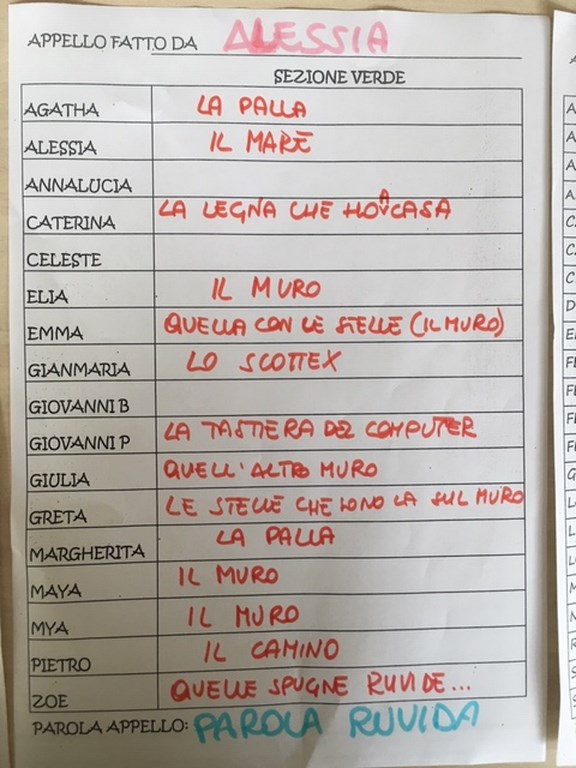 APPELLO FATTO DA ALESSIA
SEZIONE VERDE
AGATHA LA PALLA
ALESSIA IL MARE
ANNALUCIA
CATERINA LA LEGNA CHE HO A CASA
CELESTE
ELIA IL MURO
EMMA QUELLA CON LE STELLE (IL MURO)
GIANMARIA LO SCOTTEX
GIOVANNI B
GIOVANNI P LA TASTIERA DEL COMPUTER
GIULIA QUELL'ALTRO MURO
GRETA LE STELLE CHE SONO LA SUL MURO
MARGHERITA LA PALLA
MAYA IL MURO
MYA IL MURO
PIETRO IL CAMINO
ZOE QUELLE SPUGNE RUVIDE...
PAROLA APPELLO: PAROLA RUVIDA